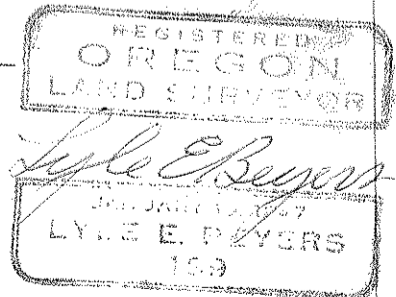 REGISTERED
OREGON
LAND SURVEYOR
Lyle E Beyers
LYLE E. BEYERS